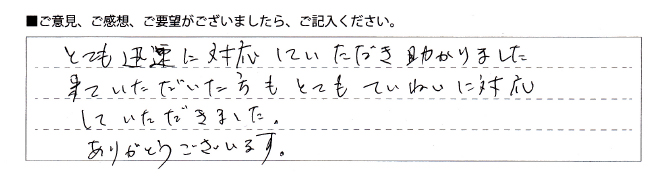 ■ご意見、ご感想、ご要望がございましたら、ご記入ください。
とても迅速に対応していただき助かりました
来ていただいた方もとてもていねいに対応
していただきました。
ありがとうございます。